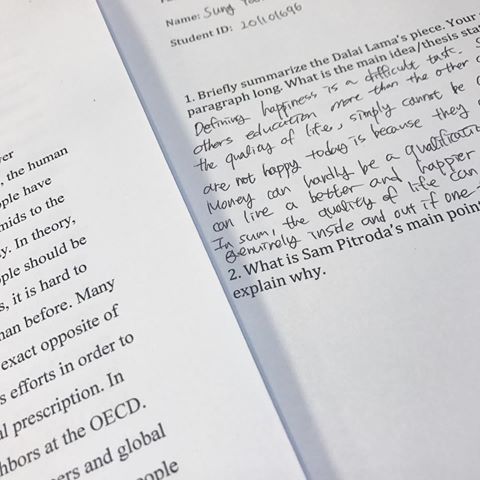 , the human
ple have
mids to the
y. In theory,
ple should be
s, it is hard to
han before. Many
exact opposite of
s efforts in order to
al prescription. In
hbors at the OECD.
ers and global
ople
Name: Sung
Student ID: 201101696
1. Briefly summarize the Dalai Lama's piece. Your
paragraph long. What is the main idea/thesis sta
Defining happiness is a difficult task. S
others education more than the other
the quality of life, simply cannot be
are not happy today is because they
Money can hardly be a qualificati
can live a better and happier
In sum, the quality of life can
genuinely inside and out if one
2. What is Sam Pitroda's main poin
explain why.